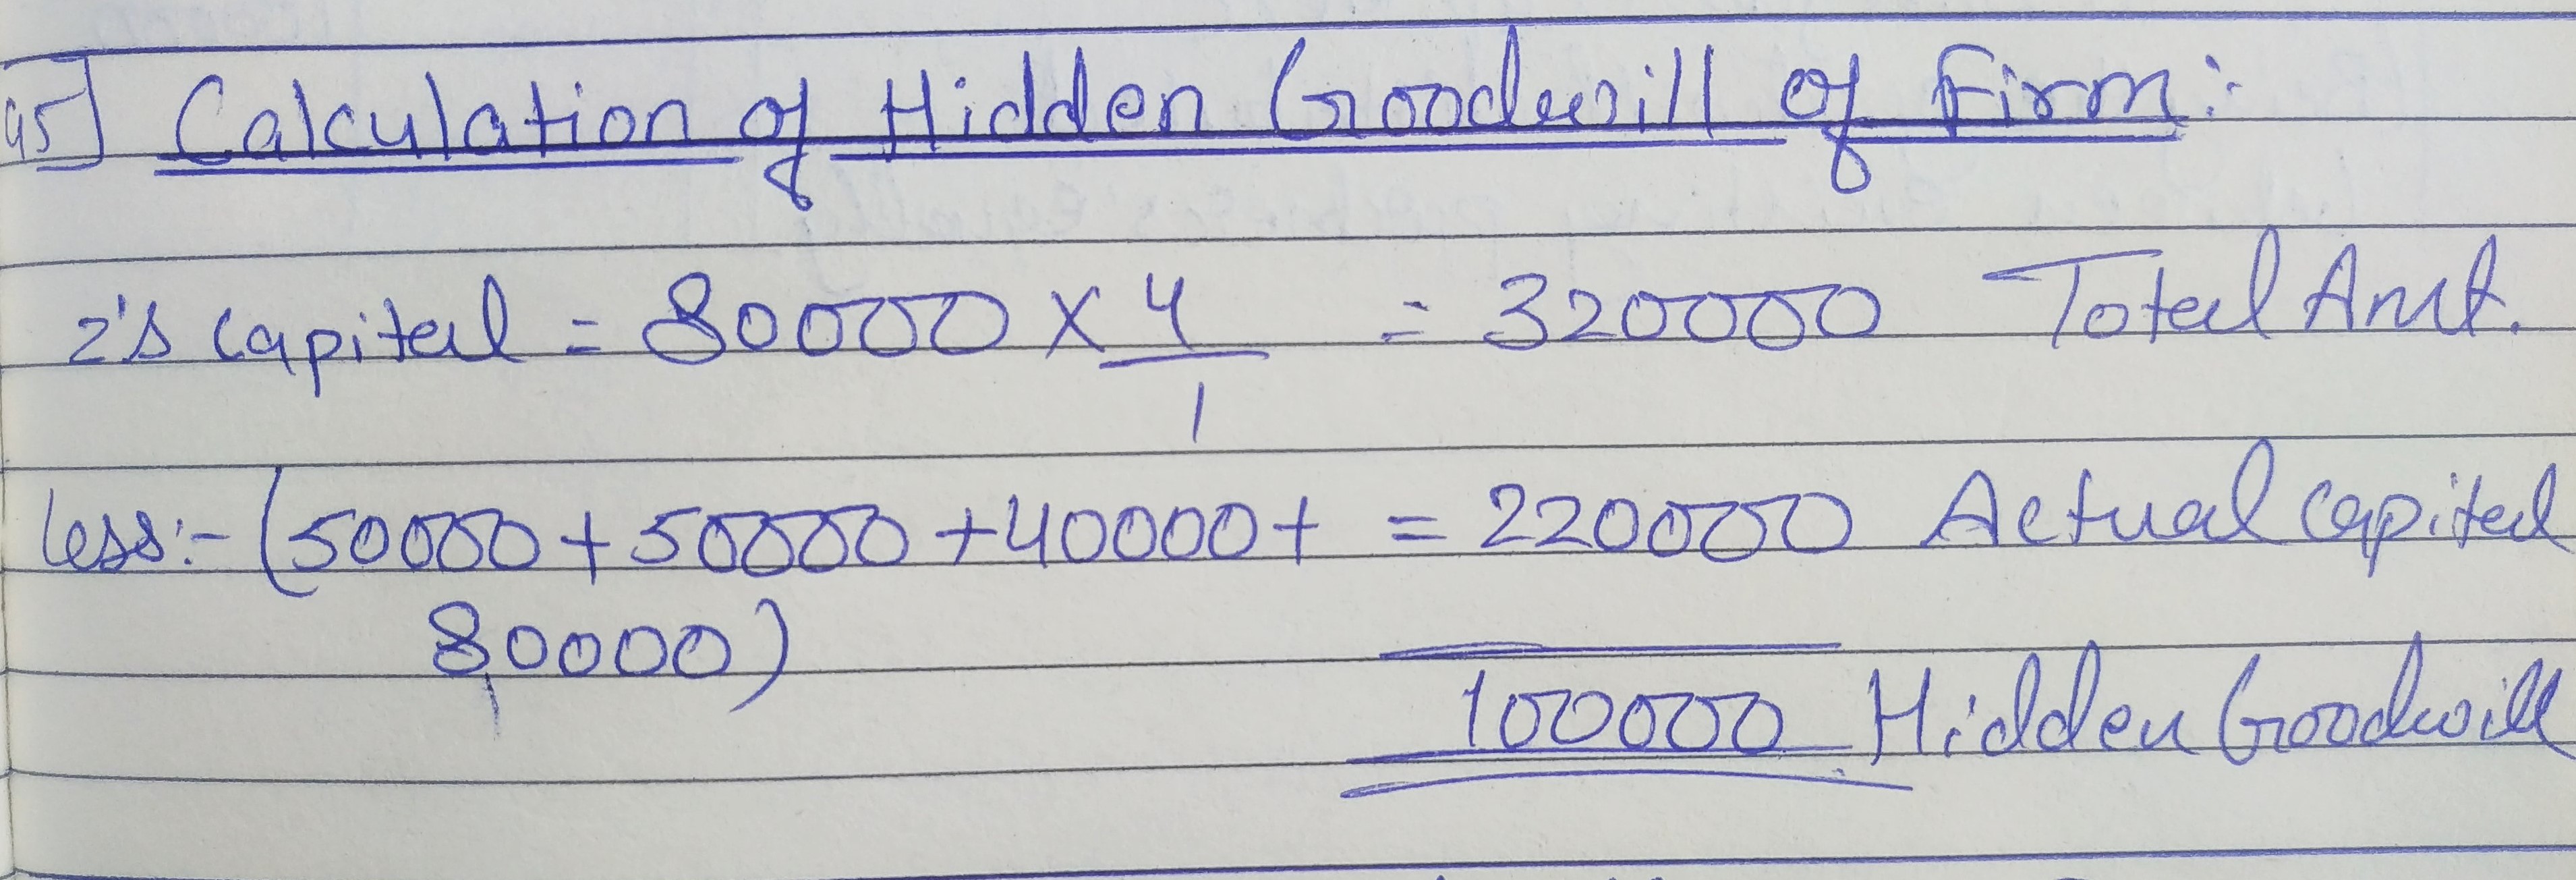 45] Calculation of Hidden Goodwill of Firm:-
z's capital = 80000 × 4/1 = 320000 Total Amt.
less:- (50000 + 50000 + 40000 + = 220000 Actual capital
80000)
100000 Hidden Goodwill